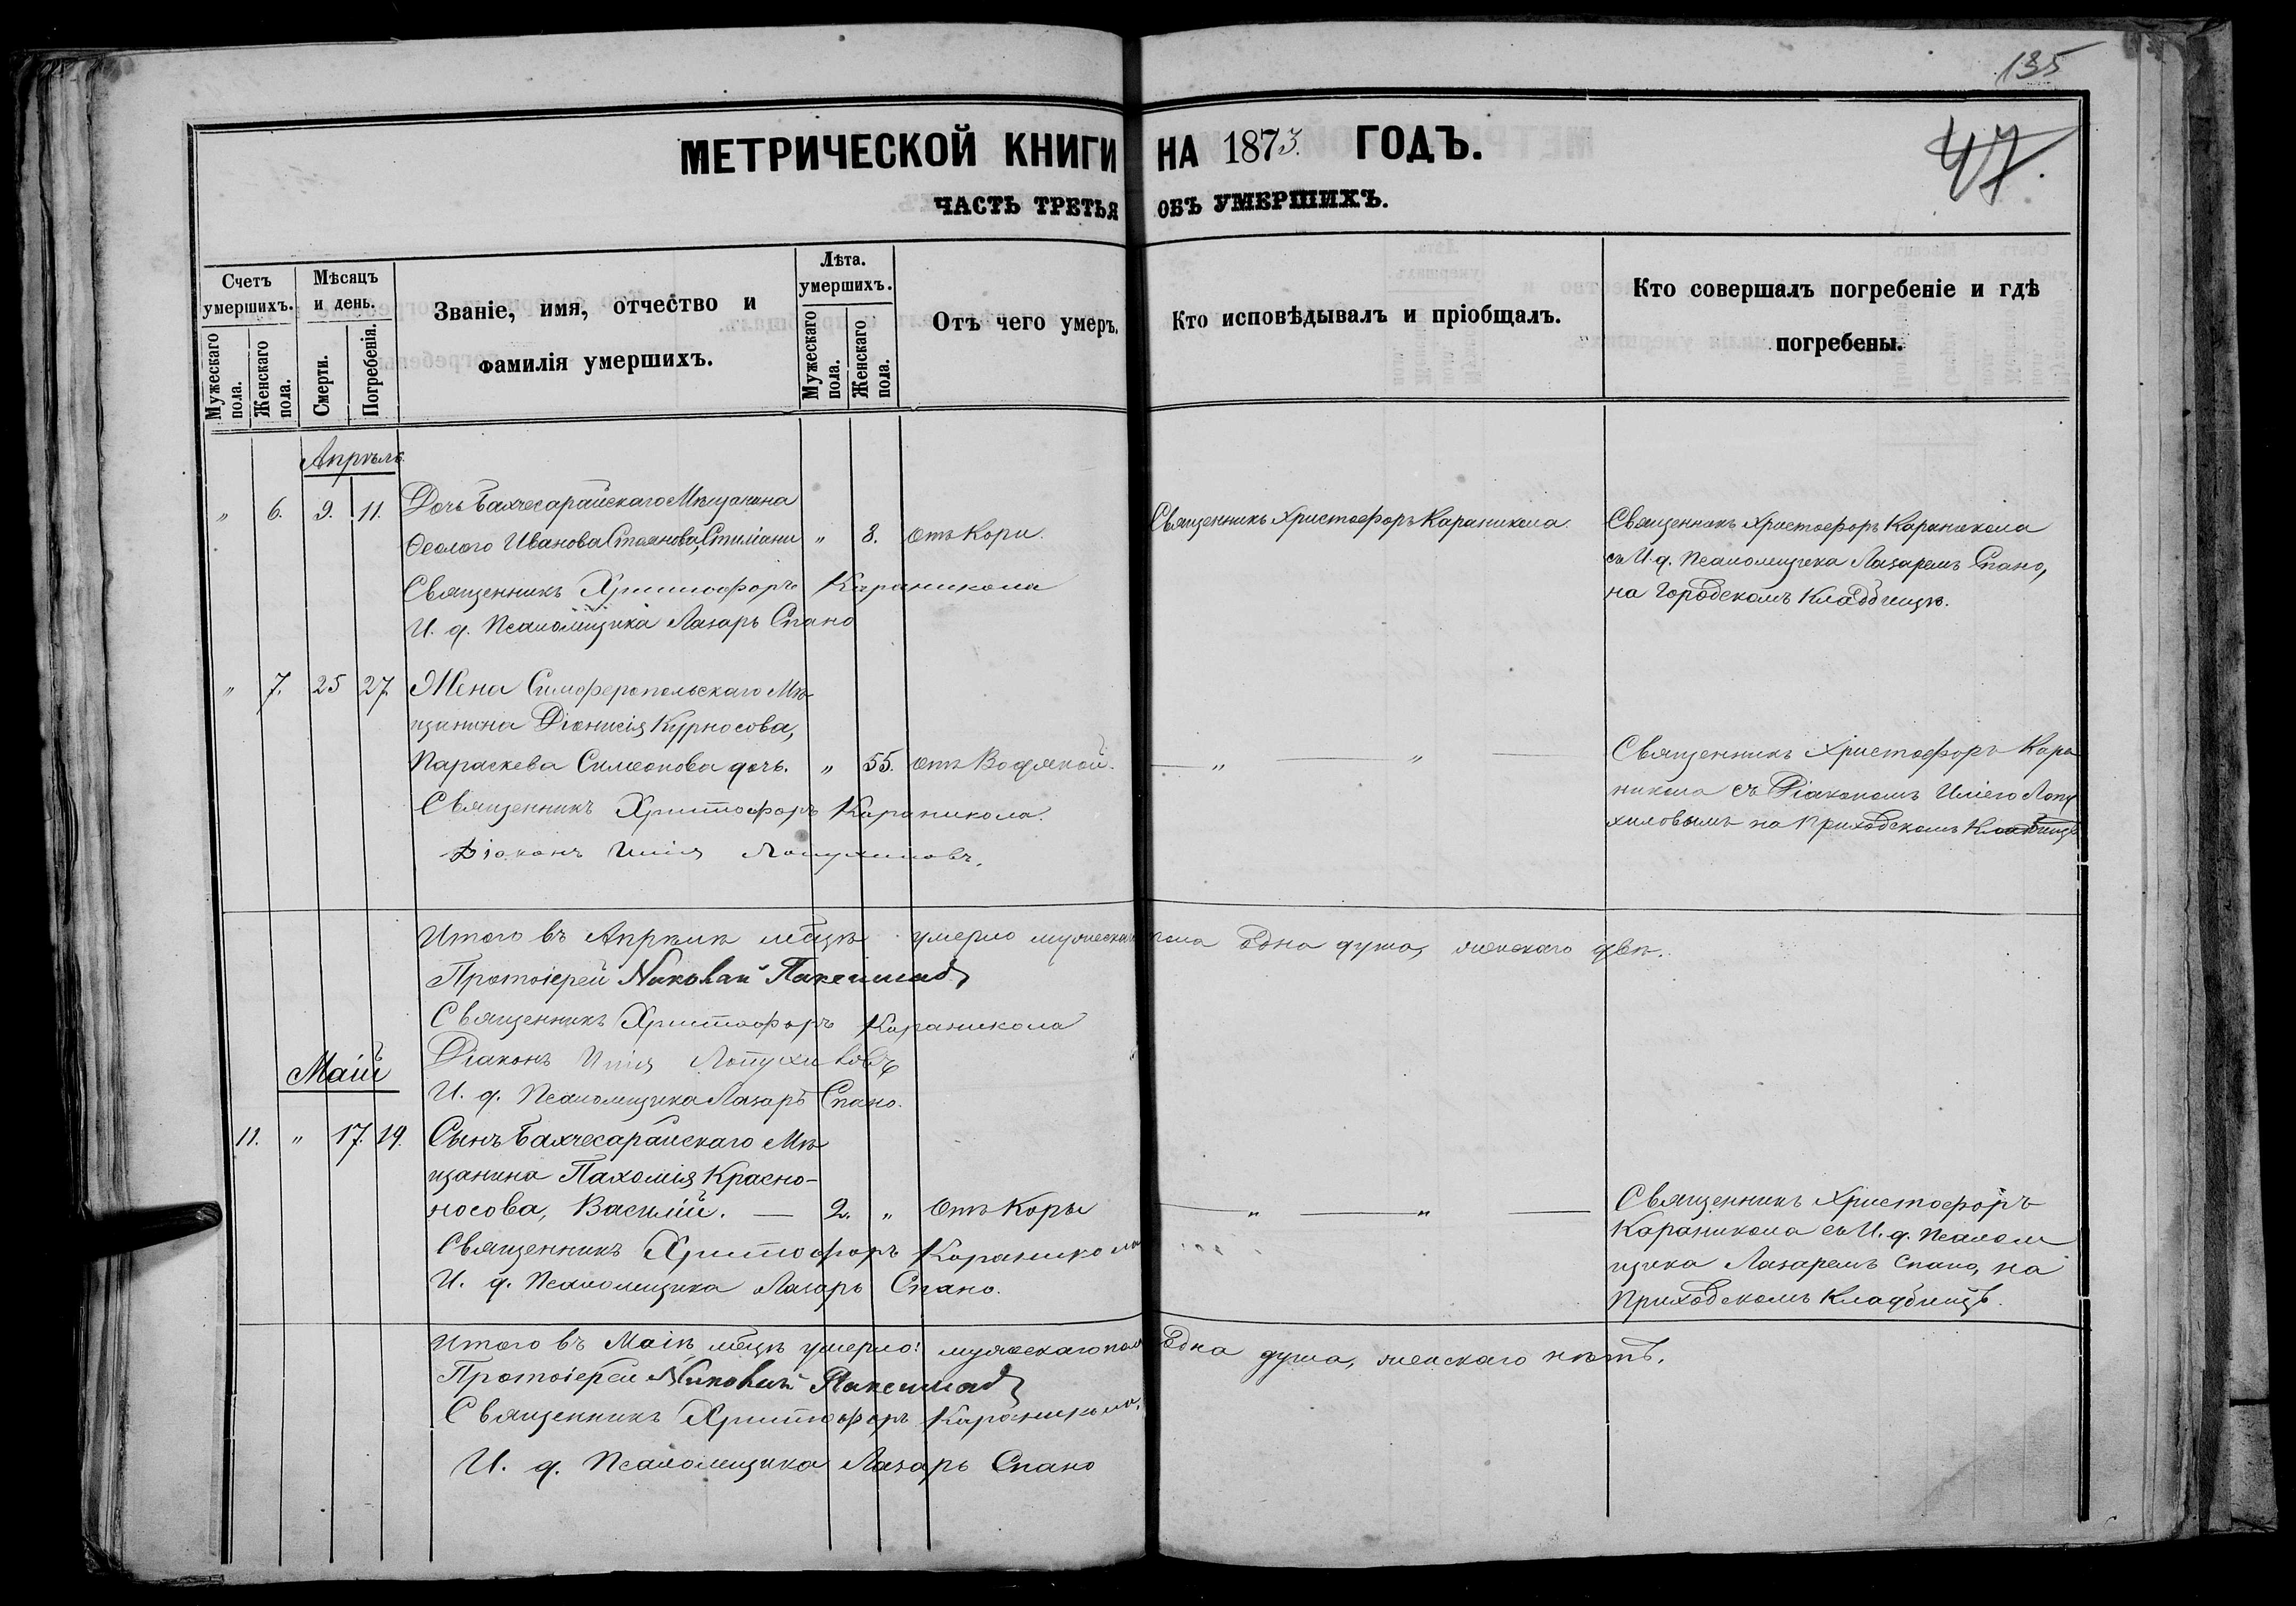 135
47.
МЕТРИЧЕСКОЙ КНИГИ НА 1873. ГОДЪ.
ЧАСТЬ ТРЕТЬЯ ОБЪ УМЕРШИХЪ.
Счетъ умершихъ.
Мужескаго пола.
Женскаго пола.
Мѣсяцъ и день.
Смерти.
Погребенія.
Званіе, имя, отчество и
фамилія умершихъ.
Лѣта. умершихъ.
Мужескаго пола.
Женскаго пола.
Отъ чего умеръ.
Кто исповѣдывалъ и пріобщалъ.
Кто совершалъ погребеніе и гдѣ
погребены.
Апрѣль.
" 6. 9. 11. Дочь Бахчесарайскаго Мѣщанина
Иванова Стоянова, Стиліани " 8. отъ Кори. Священникъ Христофоръ Караникола. Священникъ Христофоръ Караникола
съ И. д. Псаломщика Лазаремъ Спано,
на Городскомъ Кладбищѣ.
Священникъ Христофоръ Караникола
И. д. Псаломщика Лазарь Спано
" 7. 25 27. Жена Симферопольскаго Мѣ-
щанина Діонисія Курносова,
Параскева Симеонова дочь. " 55. отъ Водяной. — " — " — Священникъ Христофоръ Кара
никола съ Діакономъ Иліею Лопу
хиловымъ на Приходскомъ Кладбищѣ
Священникъ Христофоръ Караникола.
Діаконъ Илія
Итого въ Апрѣлѣ мѣсцѣ умерло мужескаго пола одна душа, женскаго двѣ.
Протоіерей Николай Паксимадъ
Священникъ Христофоръ Караникола
Діаконъ Илія
И. д. Псаломщика Лазарь Спано.
Маій
11. " 17. 19. Сынъ Бахчесарайскаго Мѣ
щанина Пахомія Красно-
носова, Василій. — 2. " отъ Коры — " — " — Священникъ Христофоръ
Караникола съ И. д. Псалом
щика Лазаремъ Спано, на
Приходскомъ Кладбищѣ.
Священникъ Христофоръ Караникола
И. д. Псаломщика Лазарь Спано.
Итого въ Маіѣ мѣсцѣ умерло: мужескаго пола одна душа, женскаго нѣтъ.
Протоіерей Николай Паксимадъ
Священникъ Христофоръ Караникола.
И. д. Псаломщика Лазарь Спано